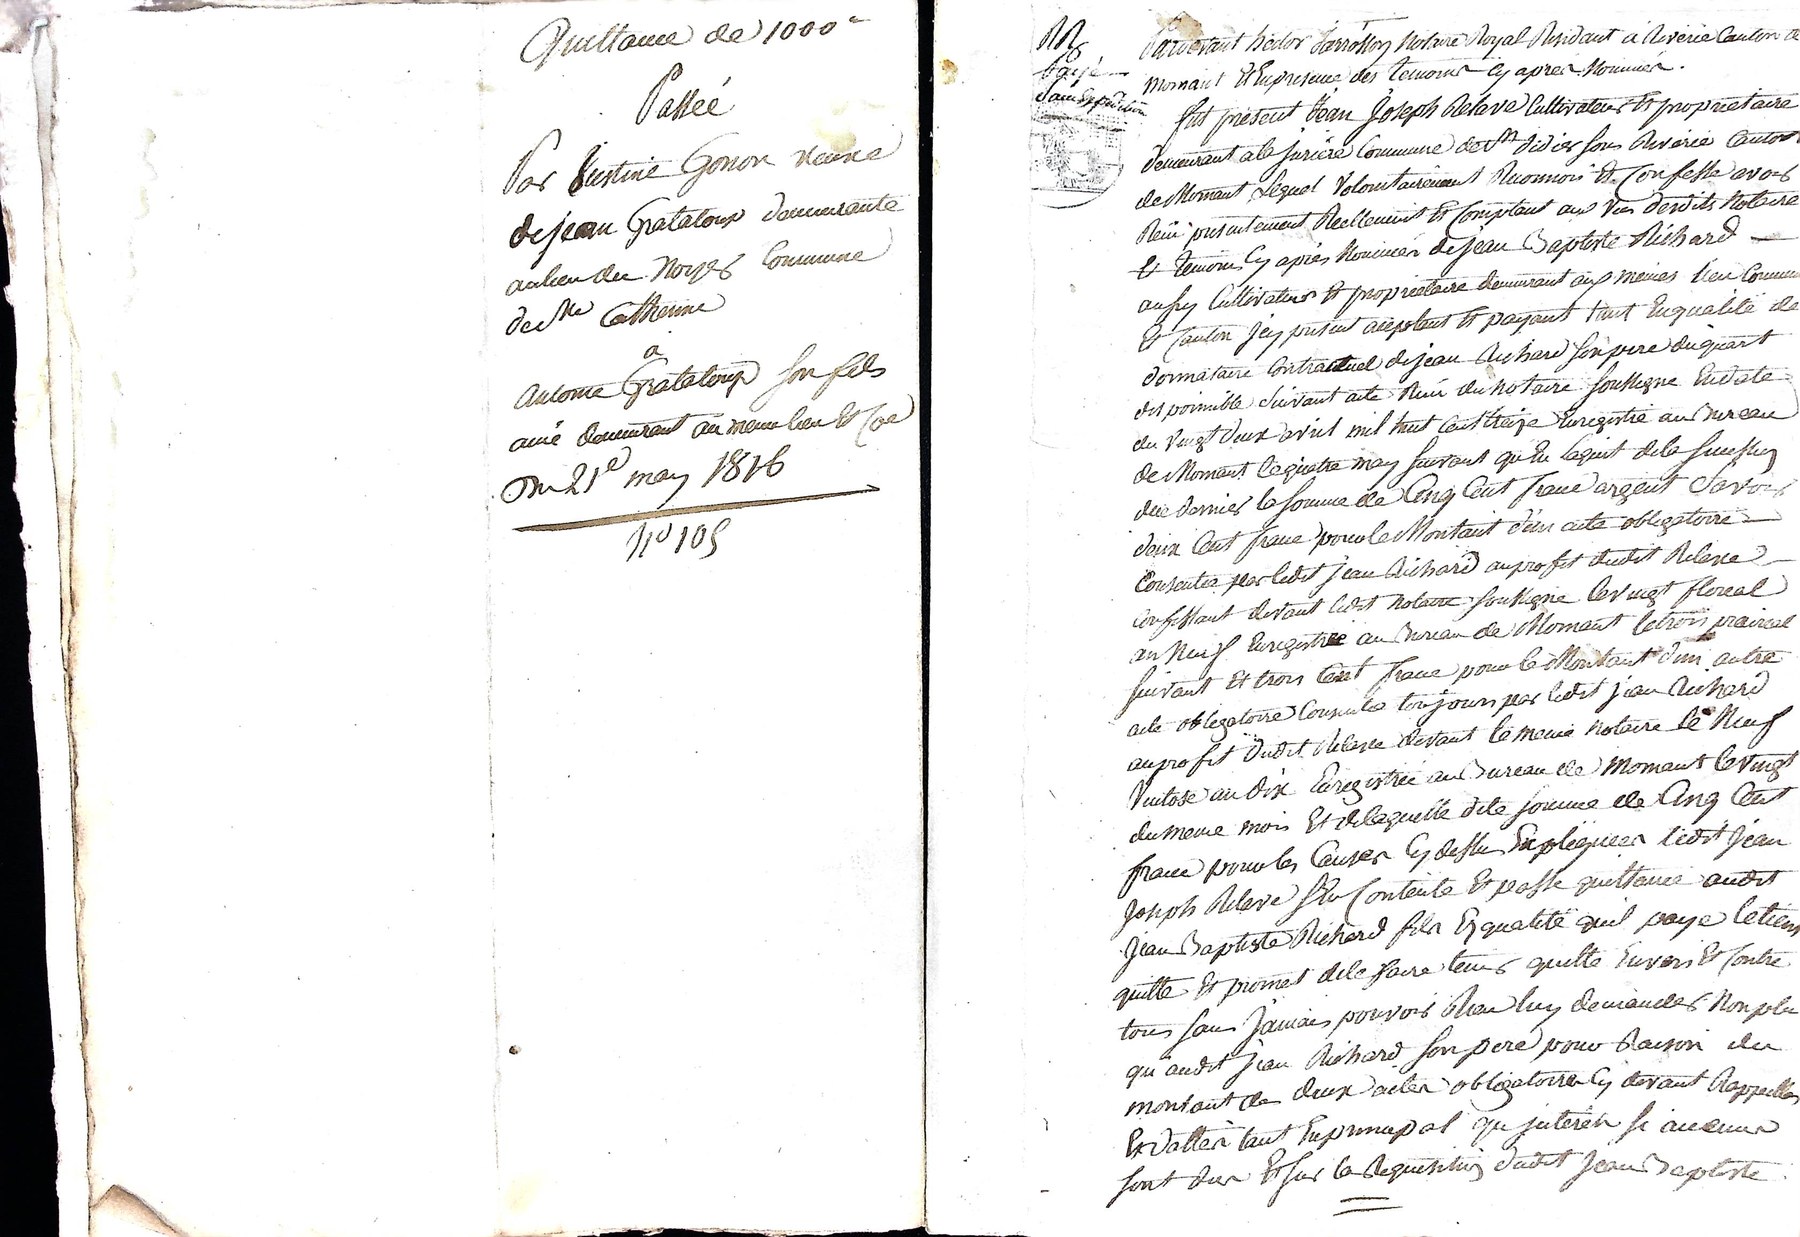 Quittance de 1000
Passée
Par Justine Gonon veuve
de jean Grataloup demeurante
au lieu du Noyer Commune
de Ste Catherine
a
Antoine Grataloup son fils
ainé demeurant au meme lieu Et Coe
Du 21e may 1816
No 105
Pardevant hector Notaire Royal Residant à Riverie Canton de
Mornant Et En presence des temoins Cy apres Nommés.
fut présent Jean Joseph Relave Cultivateur Et propriétaire
demeurant a la Commune de St didier sous Riverie Canton
de Mornant Lequel Volontairement Reconnois Et Confesse avoir
Reçu presentement Reellement Et Comptant aux vus desdits Notaire
Et temoins Cy après Nommés de jean Baptiste Richard
aussy Cultivateur Et propriétaire demeurant aux memes lieu Commune
Et Canton Icy present acceptant Et payant tant En qualité de
donnataire Contractuel de jean Richard son pere du quart
disponnible suivant acte Reçu du Notaire soussigné En date
du vingt deux avril mil huit cent treize Enregistré au Bureau
de Mornant le quatre may suivant qu'En
dernier la somme de Cinq Cent franc argent Savoir
deux Cent franc pour le Montant d'un acte obligatoire
Consentie par ledit jean Richard au profit dudit Relave
Confessant devant ledit Notaire soussigné le vingt floreal
an Neuf Enregistrée au Bureau de Mornant le trois prairial
suivant Et trois Cent franc pour le Montant d'un autre
acte obligatoire Consentie toujours par ledit jean Richard
au profit dudit Relave devant le meme Notaire le Neuf
Ventose an dix Enregistrée au Bureau de Mornant le vingt
du meme mois Et de laquelle dite somme de Cinq Cent
franc pour les Causes Cy dessus Expliquées ledit Jean
Joseph Relave s'En Contente Et passe quittance audit
Jean Baptiste Richard fils En qualité qu'il paye le tiens
quitte Et promet de le faire tenir quitte Envers Et Contre
tous sans Jamais pouvoir Rien luy demander Non plus
qu'audit Jean Richard son pere pour Raison du
montant des deux actes obligatoires Cy devant Rappellés
Et dattés tant En principal qu'intérêts si aucuns
sont dus Et sur la Requisition dudit Jean Baptiste